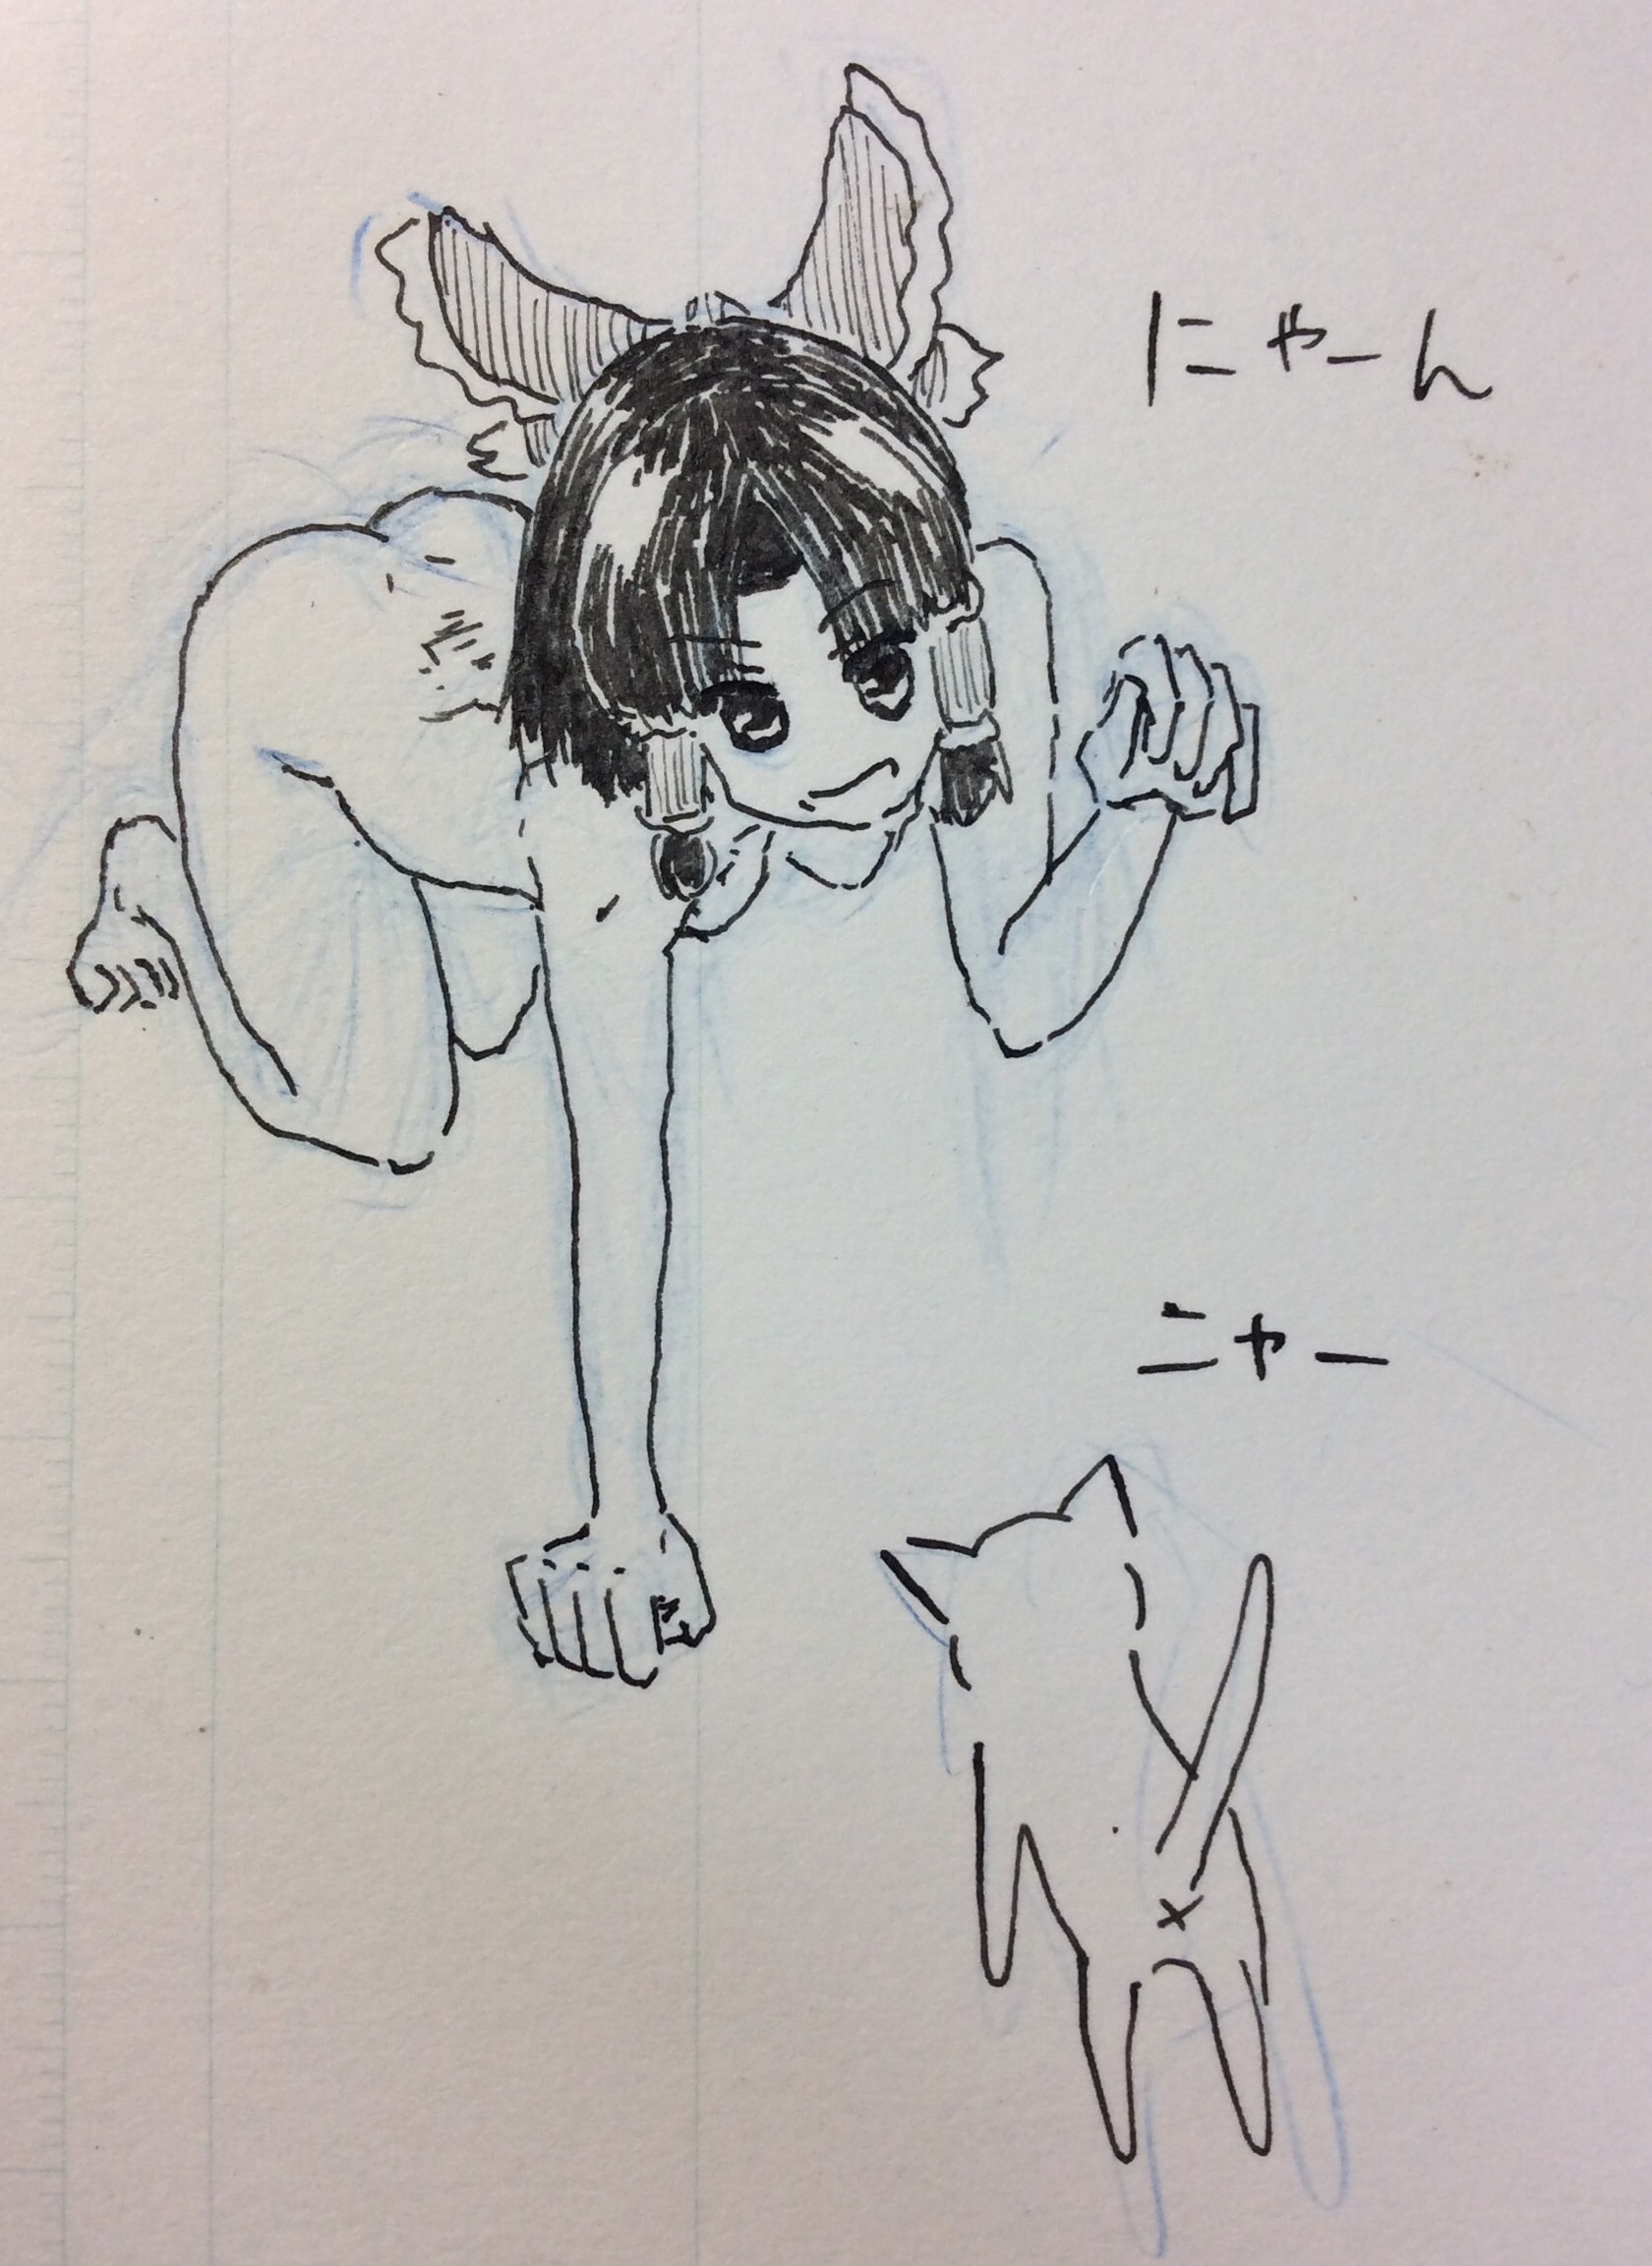 にゃーん
ニャー